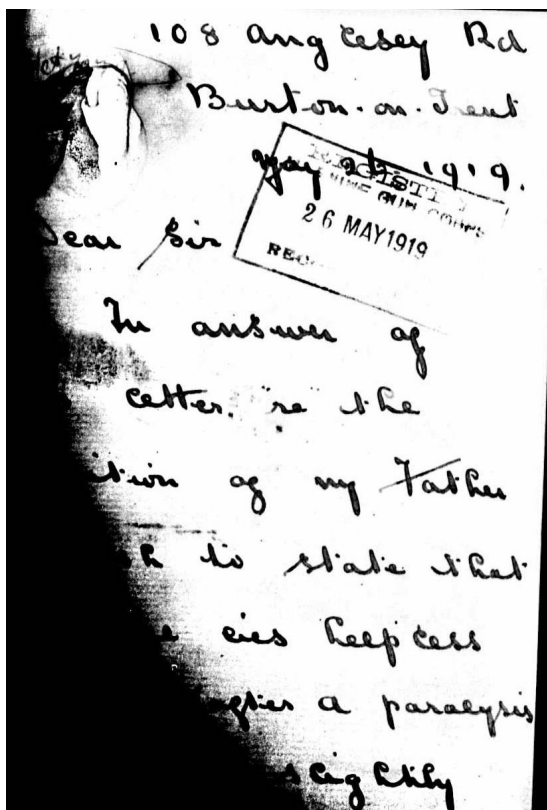 108 Anglesey Rd
Burton-on-Trent
May 1919.
REGISTRY
MACHINE GUN CORPS
26 MAY 1919
Dear Sir
In answer of
letter. "re" the
of my Father
to state that
lies helpless
after a paralysis
slightly